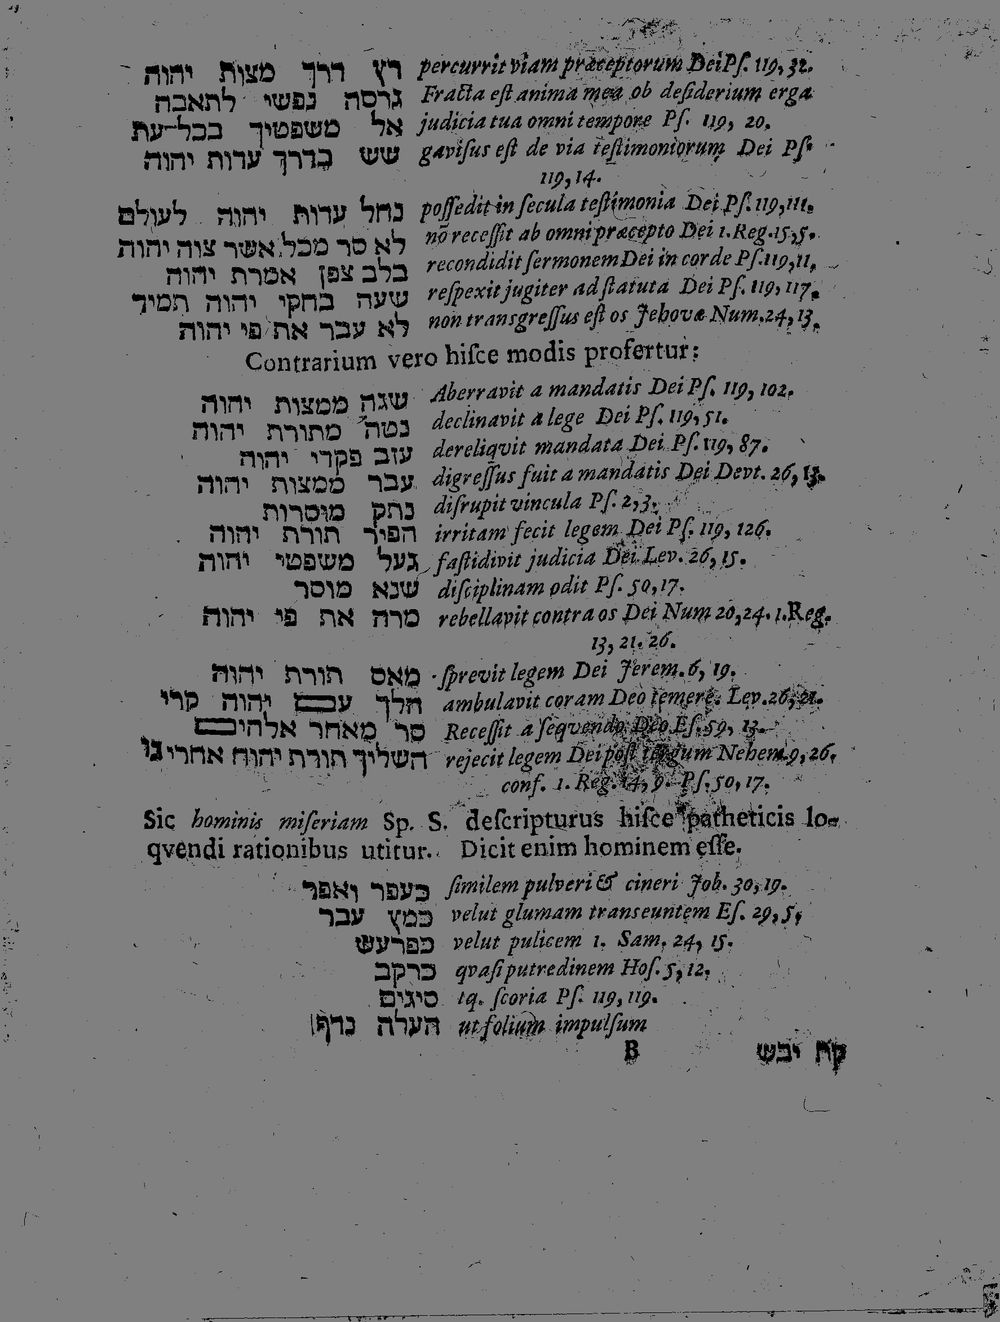 רץ דרך מצות יהוה percurrit viam præceptorum Dei Pſ. 119, 32.
גרסה נפשי לתאבה Fracta eſt anima mea ob deſiderium erga
אל משפטיך בכל־עת judicia tua omni tempore Pſ. 119, 20.
שש בדרך עדות יהוה gaviſus eſt de via teſtimoniorum Dei Pſ.
119, 14.
נחל עדות יהוה לעולם poſſedit in ſecula teſtimonia Dei Pſ. 119, 111.
לא סר מכל אשר צוה יהוה nõ receſſit ab omni præcepto Dei 1. Reg. 15, 5.
בלב צפן אמרת יהוה recondidit ſermonem Dei in corde Pſ. 119, 11,
שעה בחקי יהוה תמיד reſpexit jugiter ad ſtatuta Dei Pſ. 119, 117.
לא עבר את פי יהוה non transgreſſus eſt os Jehovæ Num. 24, 13.
Contrarium vero hiſce modis profertur:
שגה ממצות יהוה Aberravit a mandatis Dei Pſ. 119, 102.
נטה מתורת יהוה declinavit a lege Dei Pſ. 119, 51.
עזב פקדי יהוה dereliqvit mandata Dei Pſ. 119, 87.
עבר ממצות יהוה digreſſus fuit a mandatis Dei Devt. 26, 13.
נתק מוסרות diſrupit vincula Pſ. 2, 3.
הפיר תורת יהוה irritam fecit legem Dei Pſ. 119, 126.
געל משפטי יהוה faſtidivit judicia Dei Lev. 26, 15.
שנא מוסר diſciplinam odit Pſ. 50, 17.
מרה את פי יהוה rebellavit contra os Dei Num 20, 24. 1. Reg.
13, 21. 26.
מאס תורת יהוה ſprevit legem Dei Jerem. 6, 19.
הלך עם יהוה קרי ambulavit coram Deo temere. Lev. 26, 21.
סר מאחר אלהים Receſſit a ſeqvendo Deo Eſ. 59, 13.
השליך תורת יהוה אחרי גו rejecit legem Dei poſt tergum Nehem. 9, 26.
conf. 1. Reg. 14, 9. Pſ. 50, 17.
Sic hominis miſeriam Sp. S. deſcripturus hiſce patheticis lo-
qvendi rationibus utitur. Dicit enim hominem eſſe.
כעפר ואפר ſimilem pulveri & cineri Job. 30, 19.
כמץ עבר velut glumam transeuntem Eſ. 29, 5,
כפרעש velut pulicem 1. Sam. 24, 15.
כרקב qvaſi putredinem Hoſ. 5, 12.
סיגים tq. ſcoria Pſ. 119, 119.
העלה נדף ut folium impulſum
B קת יבש